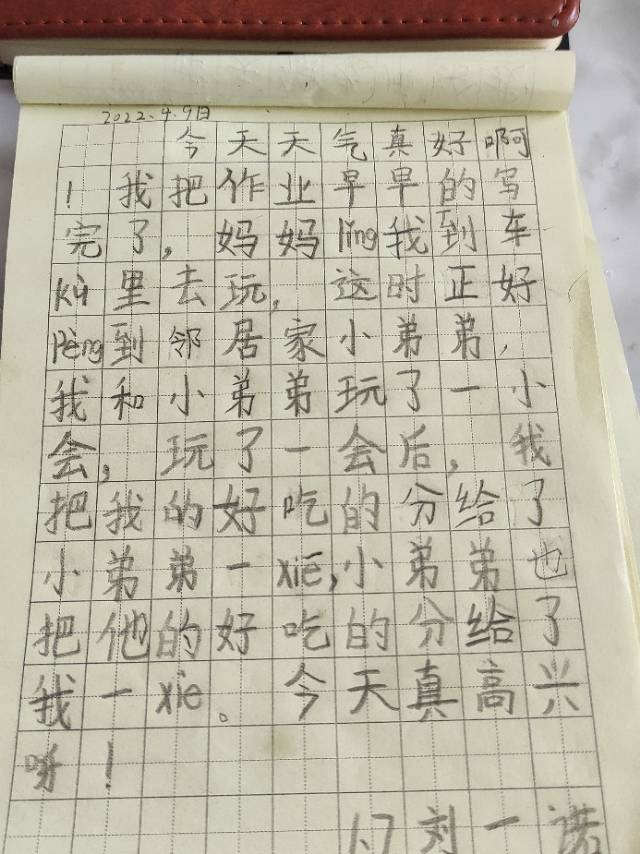 2022.4.9日
今天天气真好啊
！我把作业早早的写
完了，妈妈lǐng我到车
kù里去玩，这时正好
pèng到邻居家小弟弟，
我和小弟弟玩了一小
会，玩了一会后，我
把我的好吃的分给了
小弟弟一xiē，小弟弟也
把他的好吃的分给了
我一xiē。今天真高兴
呀！
1.7刘一诺